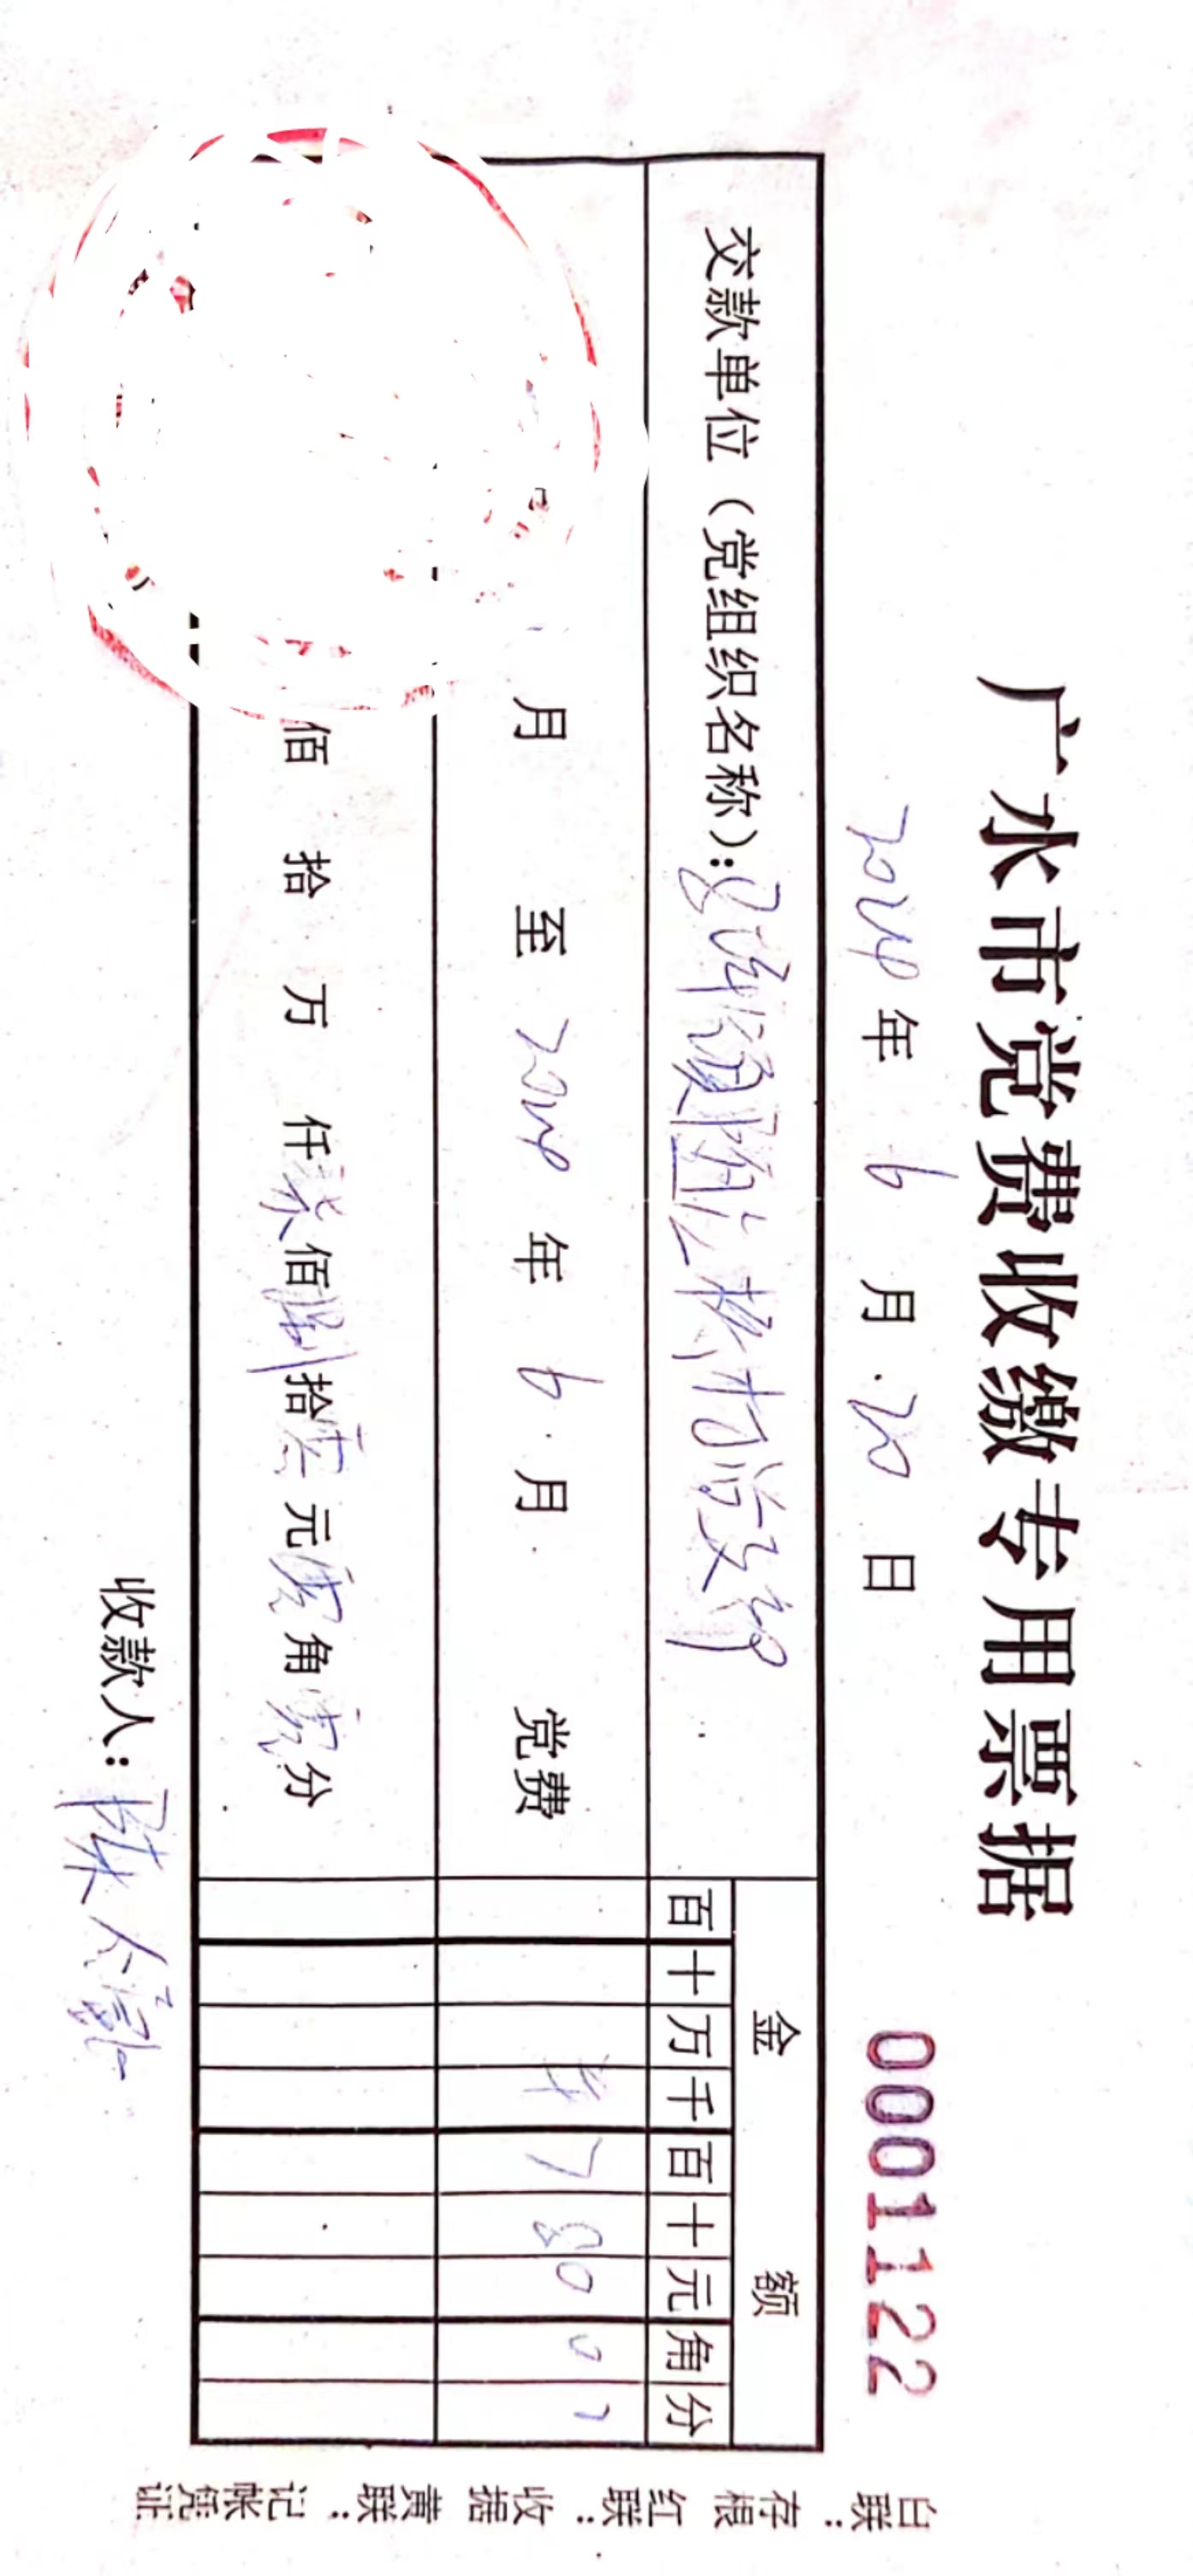 广水市党费收缴专用票据
2024年6月20日
0001122
交款单位（党组织名称）：
金额
百十万千百十元角分
月至2024年6月党费
¥78000
佰拾万仟柒佰捌拾零元零角零分
收款人：陈
白联：存根 红联：收据 黄联：记帐凭证